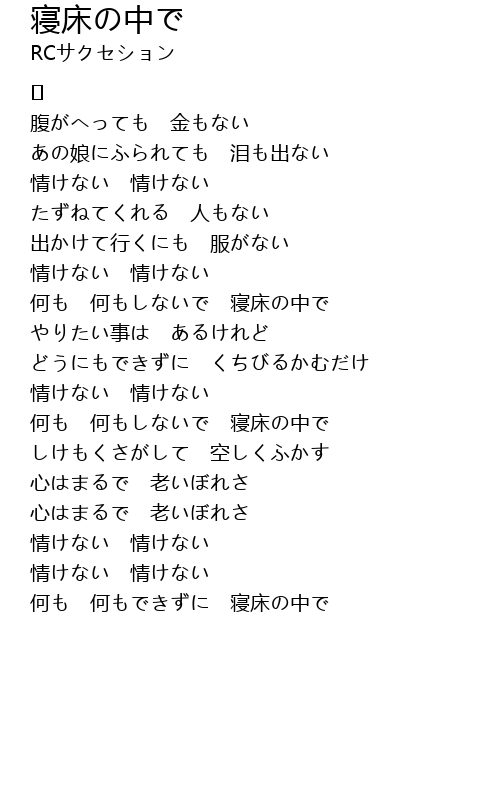 寝床の中で
RCサクセション
腹がへっても　金もない
あの娘にふられても　泪も出ない
情けない　情けない
たずねてくれる　人もない
出かけて行くにも　服がない
情けない　情けない
何も　何もしないで　寝床の中で
やりたい事は　あるけれど
どうにもできずに　くちびるかむだけ
情けない　情けない
何も　何もしないで　寝床の中で
しけもくさがして　空しくふかす
心はまるで　老いぼれさ
心はまるで　老いぼれさ
情けない　情けない
情けない　情けない
何も　何もできずに　寝床の中で